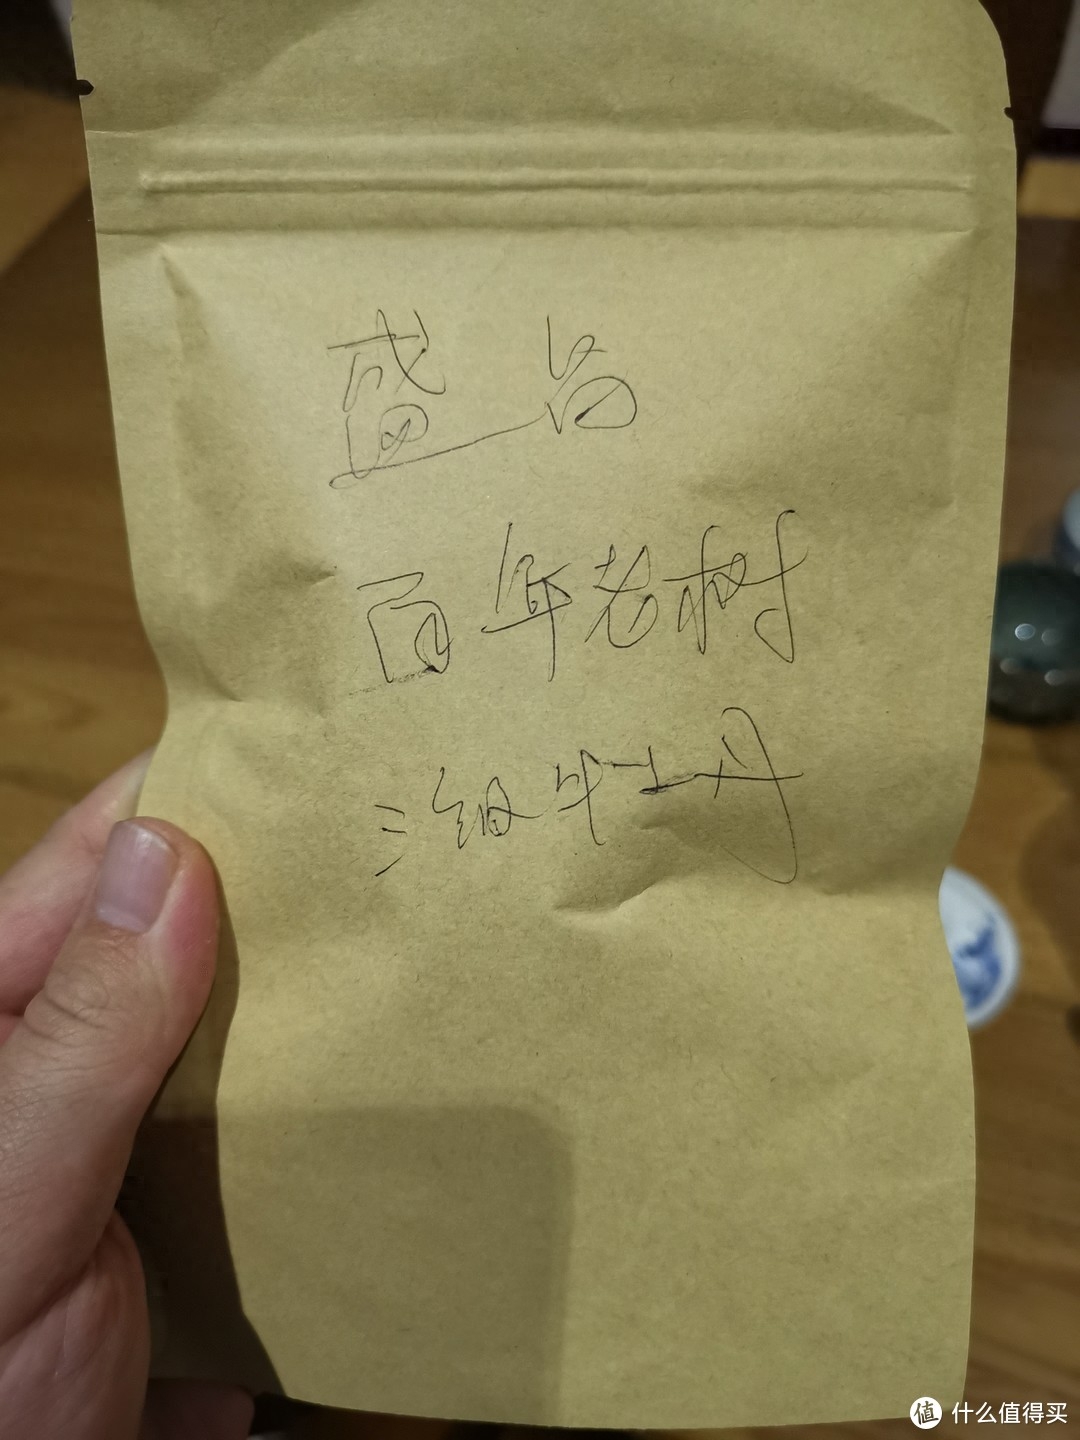 盛茗
百年老树
三级牡丹
值 什么值得买